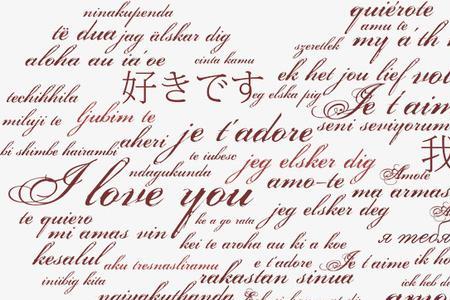 ninakupenda
quiérote
amu te
të dua
jag älskar dig
szeretlek
my a'th
aloha au ia'oe
cinta kamu
ek het jou lief
techihhila
好きです
eg elska pig
Je t'aim
mituji te
ljubim te
aheri
je t'adore
seni seviyorum
bi shimbe hairambi
te iubesc
jeg elsker dig
我
ndagukunda
Amote
I love you
amo-te
ma armas
te quiero
ke a go rata
jeg elsker deg
mi amas vin
kei te aroha au ki a koe
я тебя
kesalul
aku tresnasliramu
e t'adore
Je t'aime
ik ho
iniibig kita
rakastan sinua
ick heb de